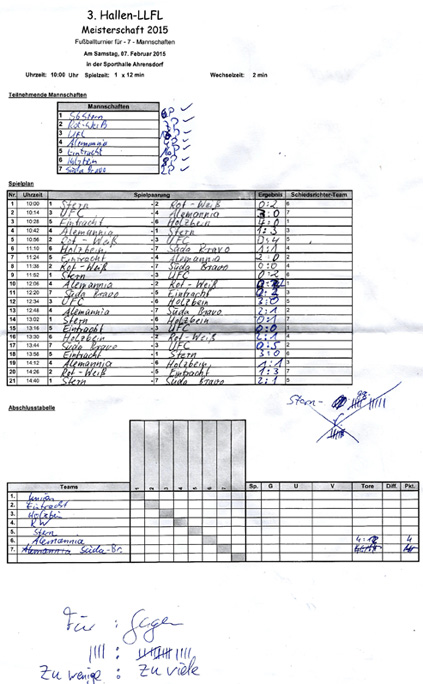 3. Hallen-LLFL
Meisterschaft 2015
Fußballturnier für - 7 - Mannschaften
Am Samstag, 07. Februar 2015
in der Sporthalle Ahrensdorf
Uhrzeit: 10:00 Uhr Spielzeit: 1 x 12 min Wechselzeit: 2 min
Teilnehmende Mannschaften
Mannschaften
1 SG Stern
2 Rot-Weiß
3 UFC
4 Alemannia
5 Eintracht
6 Holzbein
7 Süda Bravo 2P
Spielplan
Nr. Uhrzeit Spielpaarung Ergebnis Schiedsrichter-Team
1 10:00 1 Stern - 2 Rot-Weiß 0:2 6
2 10:14 3 UFC - 4 Alemannia 3:0 7
3 10:28 5 Eintracht - 6 Holzbein 4:0 1
4 10:42 4 Alemannia - 1 Stern 1:3 3
5 10:56 2 Rot-Weiß - 3 UFC 0:4 6
6 11:10 6 Holzbein - 7 Süda Bravo 1:1 4
7 11:24 5 Eintracht - 4 Alemannia 2:0 2
8 11:38 2 Rot-Weiß - 7 Süda Bravo 0:0 4
9 11:52 1 Stern - 3 UFC 0:2 6
10 12:06 4 Alemannia - 2 Rot-Weiß 1
11 12:20 7 Süda Bravo - 5 Eintracht 5
12 12:34 3 UFC - 6 Holzbein 5
13 12:48 4 Alemannia - 7 Süda Bravo 2:1 2
14 13:02 1 Stern - 6 Holzbein 0:1
15 13:16 5 Eintracht - 3 UFC 0:0 1
16 13:30 6 Holzbein - 2 Rot-Weiß 2:1 4
17 13:44 7 Süda Bravo - 3 UFC 0:5 2
18 13:58 5 Eintracht - 1 Stern 3:0 6
19 14:12 4 Alemannia - 6 Holzbein 1:1 3
20 14:26 2 Rot-Weiß - 5 Eintracht 1:3 7
21 14:40 1 Stern - 7 Süda Bravo 2:1 5
Stern -
Abschlusstabelle
Teams 1 2 3 4 5 6 7 Sp. G U V Tore Diff. Pkt.
1. Union
2. Eintracht
3. Holzbein
4. RW
5. Stern
6. Alemannia 4
7. Alemannia Süda-Br.
Für : Gegen
|||| :
Zu wenige : Zu viele